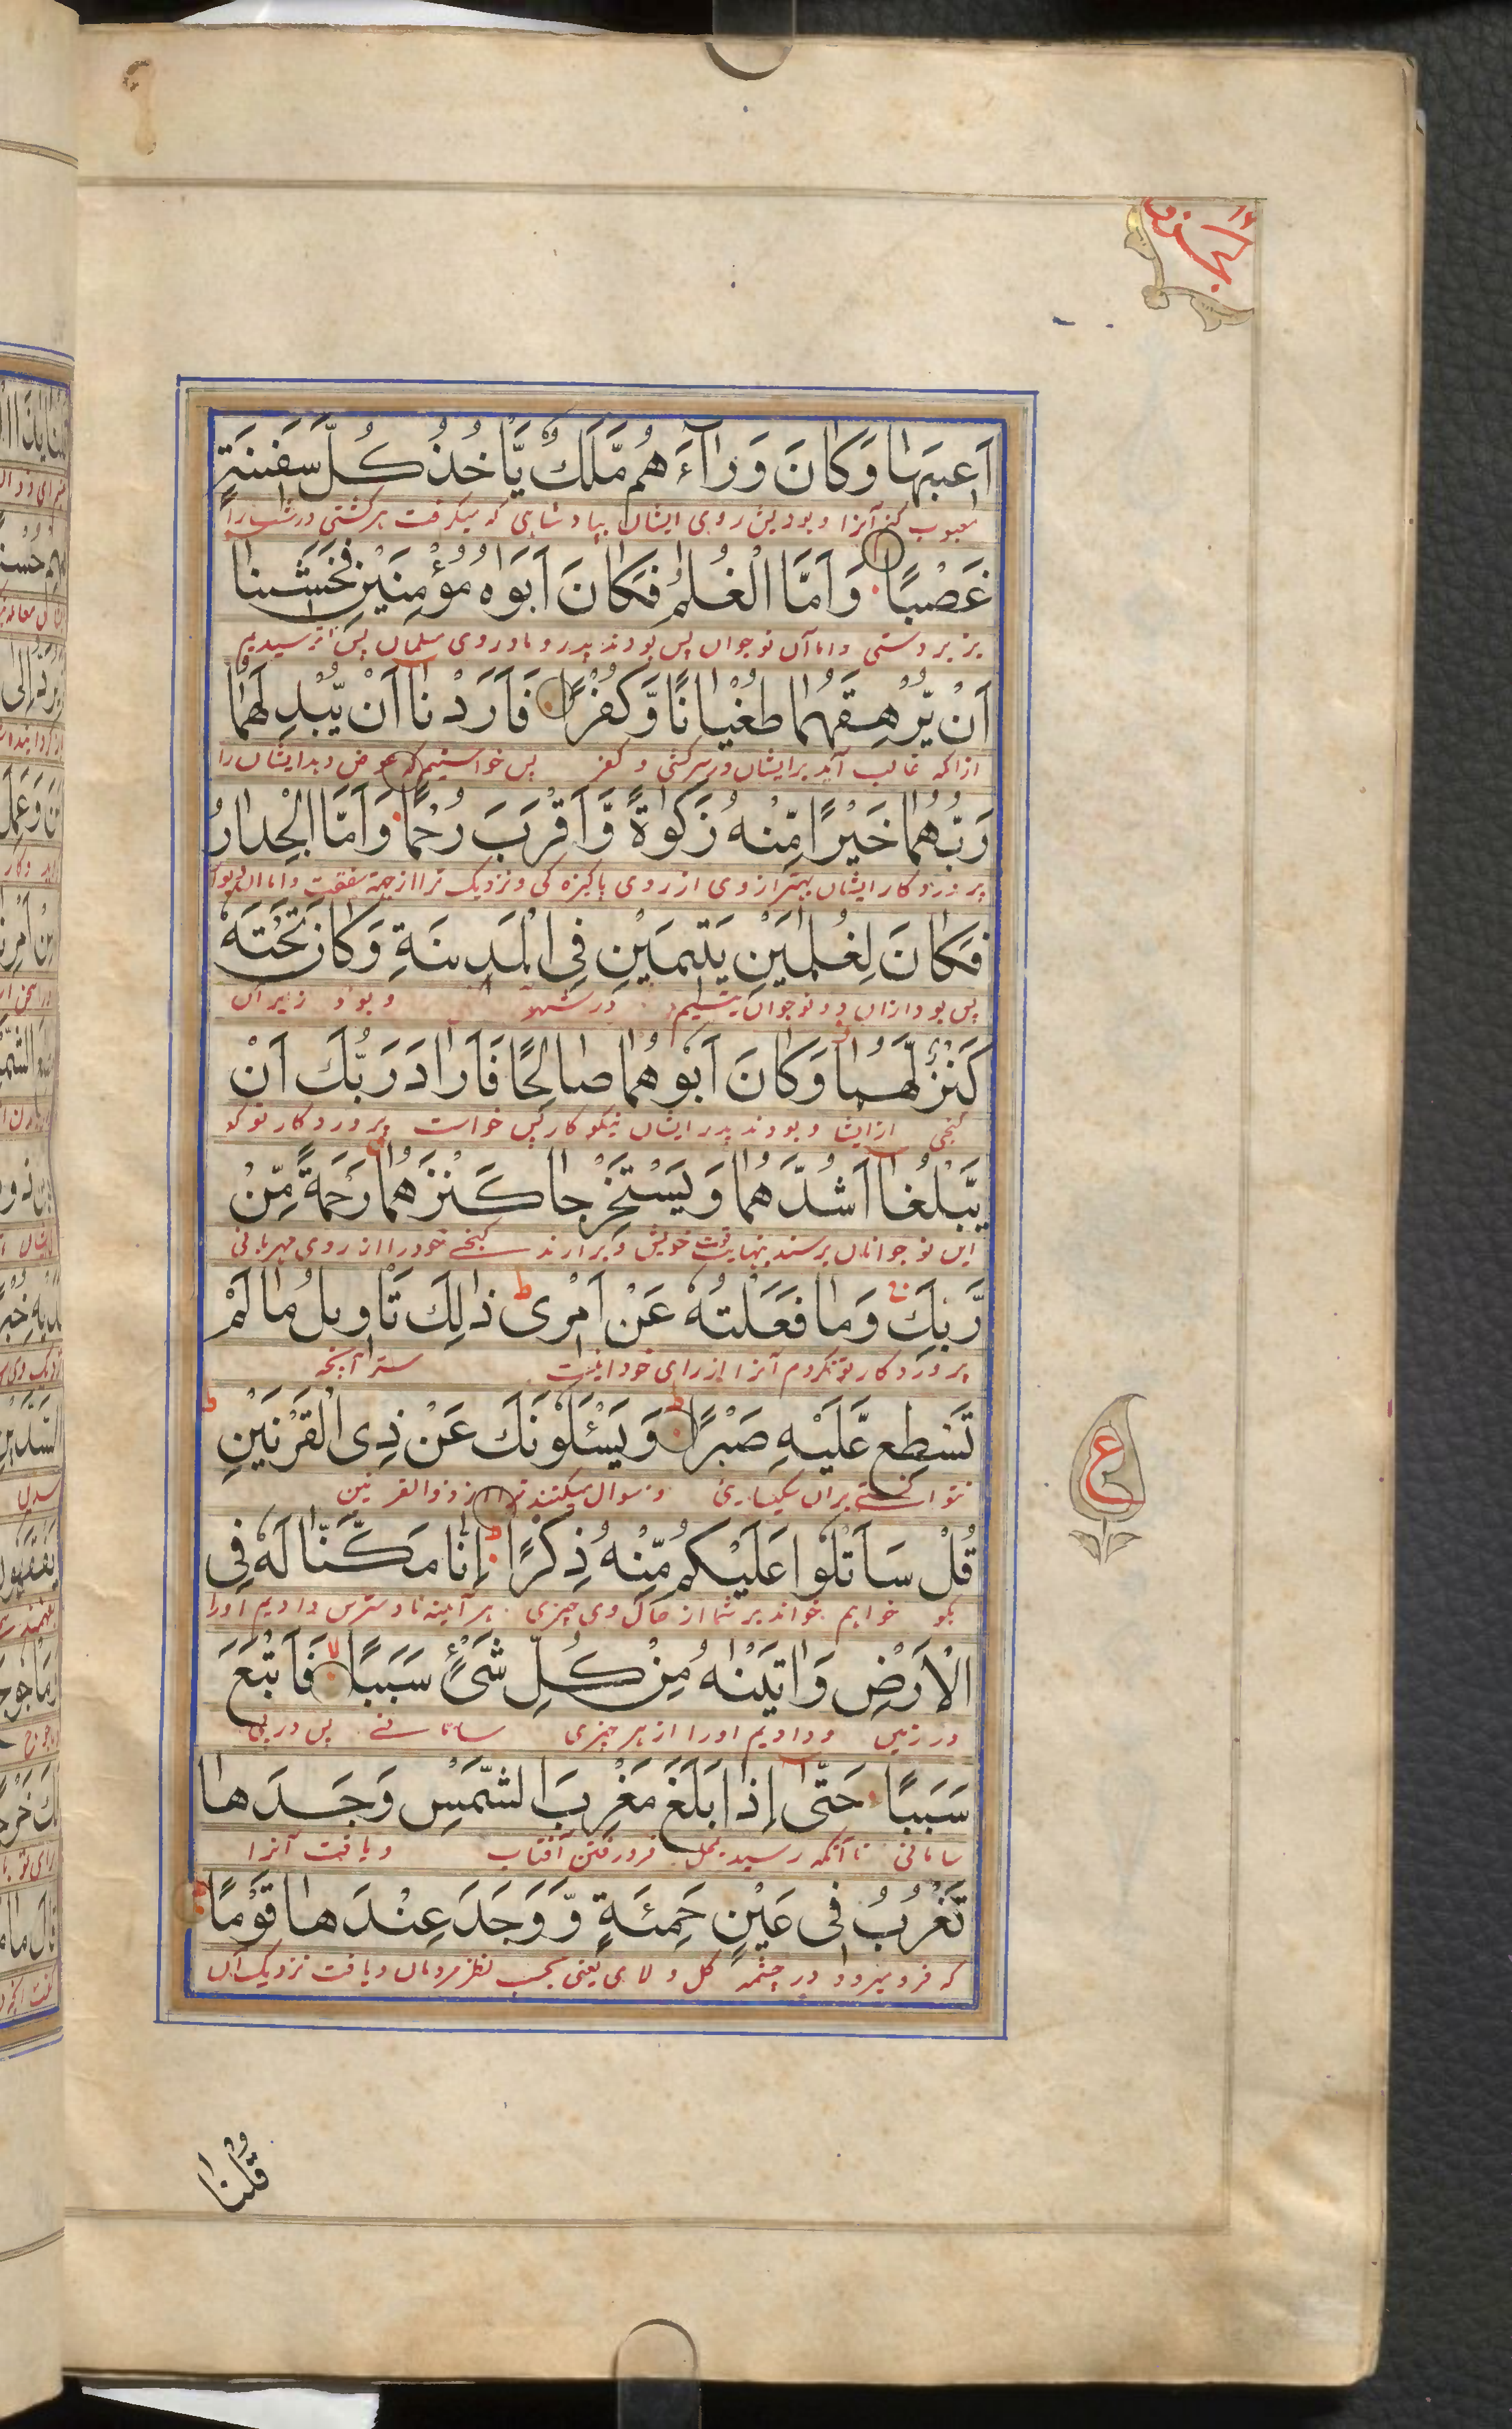 الجزو ١٦
اَعيبَها وَكانَ وَرآءَ هُم مَّلِكٌ يَّاخُذُ كُلَّ سَفينَةٍ
معیوب کنم آنرا و بود پیش روی ایشان پادشاهی که میگرفت هر کشتی درست را
غَصْبًا وَاَمَّا الْغُلٰمُ فَكانَ اَبَواهُ مُؤْمِنَيْنِ فَخَشينا
بزبردستی واما آن نوجوان پس بودند پدر و مادر وی مسلمان پس ترسیدیم
اَنْ يُّرْهِقَهُما طُغْيانًا وَّكُفْرًا فَاَرَدْنا اَنْ يُّبْدِلَهُما
ازانکه غالب آید بر ایشان در سرکشی و کفر پس خواستیم که عوض دهد ایشان را
رَبُّهُما خَيْرًا مِّنْهُ زَكٰوةً وَّاَقْرَبَ رُحْمًا وَاَمَّا الْجِدارُ
پروردگار ایشان بهتر از وی از روی پاکیزه کی و نزدیک تر از جهة شفقت واما آن دیوار
فَكانَ لِغُلٰمَيْنِ يَتيمَيْنِ فِى الْمَدينَةِ وَكانَ تَحْتَهٗ
پس بود ازان دو نوجوان یتیم در شهر و بود زیر آن
كَنْزٌ لَّهُما وَكانَ اَبُوهُما صالِحًا فَاَرادَ رَبُّكَ اَنْ
گنجی از ایشان و بود پدر ایشان نیکوکار پس خواست پروردگار تو که
يَّبْلُغا اَشُدَّهُما وَيَسْتَخْرِجا كَنْزَهُما رَحْمَةً مِّنْ
این نوجوانان برسند بنهایت قوت خویش و برارند گنج خود را از روی مهربانی
رَّبِّكَ وَما فَعَلْتُهٗ عَنْ اَمْرى ذٰلِكَ تَاْويلُ ما لَمْ
پروردگار تو نکردم آنرا از رای خود اینست سر آنچه
تَسْطِع عَّلَيْهِ صَبْرًا وَيَسْئَلُونَكَ عَنْ ذِى الْقَرْنَيْنِ
نتوانستی بران شکیبایی و سوال میکنند ترا از ذوالقرنین
ع
قُلْ سَاَتْلُوا عَلَيْكُم مِّنْهُ ذِكْرًا اِنّا مَكَّنّا لَهٗ فِى
بگو خواهم خواند بر شما از حال وی چیزی هر آیینه ما دسترس دادیم اورا
الْاَرْضِ وَاٰتَيْنٰهُ مِنْ كُلِّ شَىْءٍ سَبَبًا فَاَتْبَعَ
در زمین و دادیم اورا از هر چیزی سامانے پس در پی
سَبَبًا حَتّٰى اِذا بَلَغَ مَغْرِبَ الشَّمْسِ وَجَدَها
سامانی تا آنکه رسید بمحل فرو رفتن آفتاب و یافت آنرا
تَغْرُبُ فى عَيْنٍ حَمِئَةٍ وَّوَجَدَ عِنْدَها قَوْمًا
که فرو میرود در چشمه گل و لای یعنی بحسب نظر مردمان و یافت نزدیک آن
قُلْنا